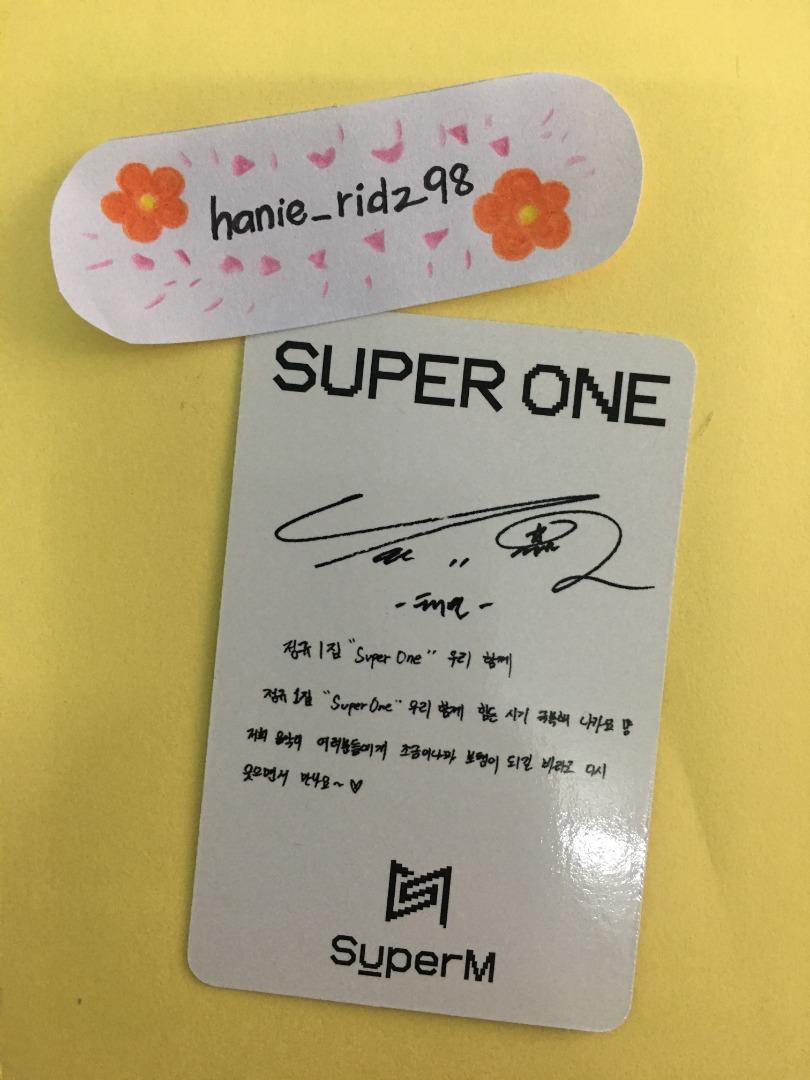 hanie_ridz98
SUPER ONE
-태민-
정규 1집 "Super One" 우리 함께
정규 1집 "Super One" 우리 함께 힘든 시기 극복해 나가요
저희 음악이 여러분들에게 조금이나마 보탬이 되길 바라고 다시
웃으면서 만나요~♡
SuperM